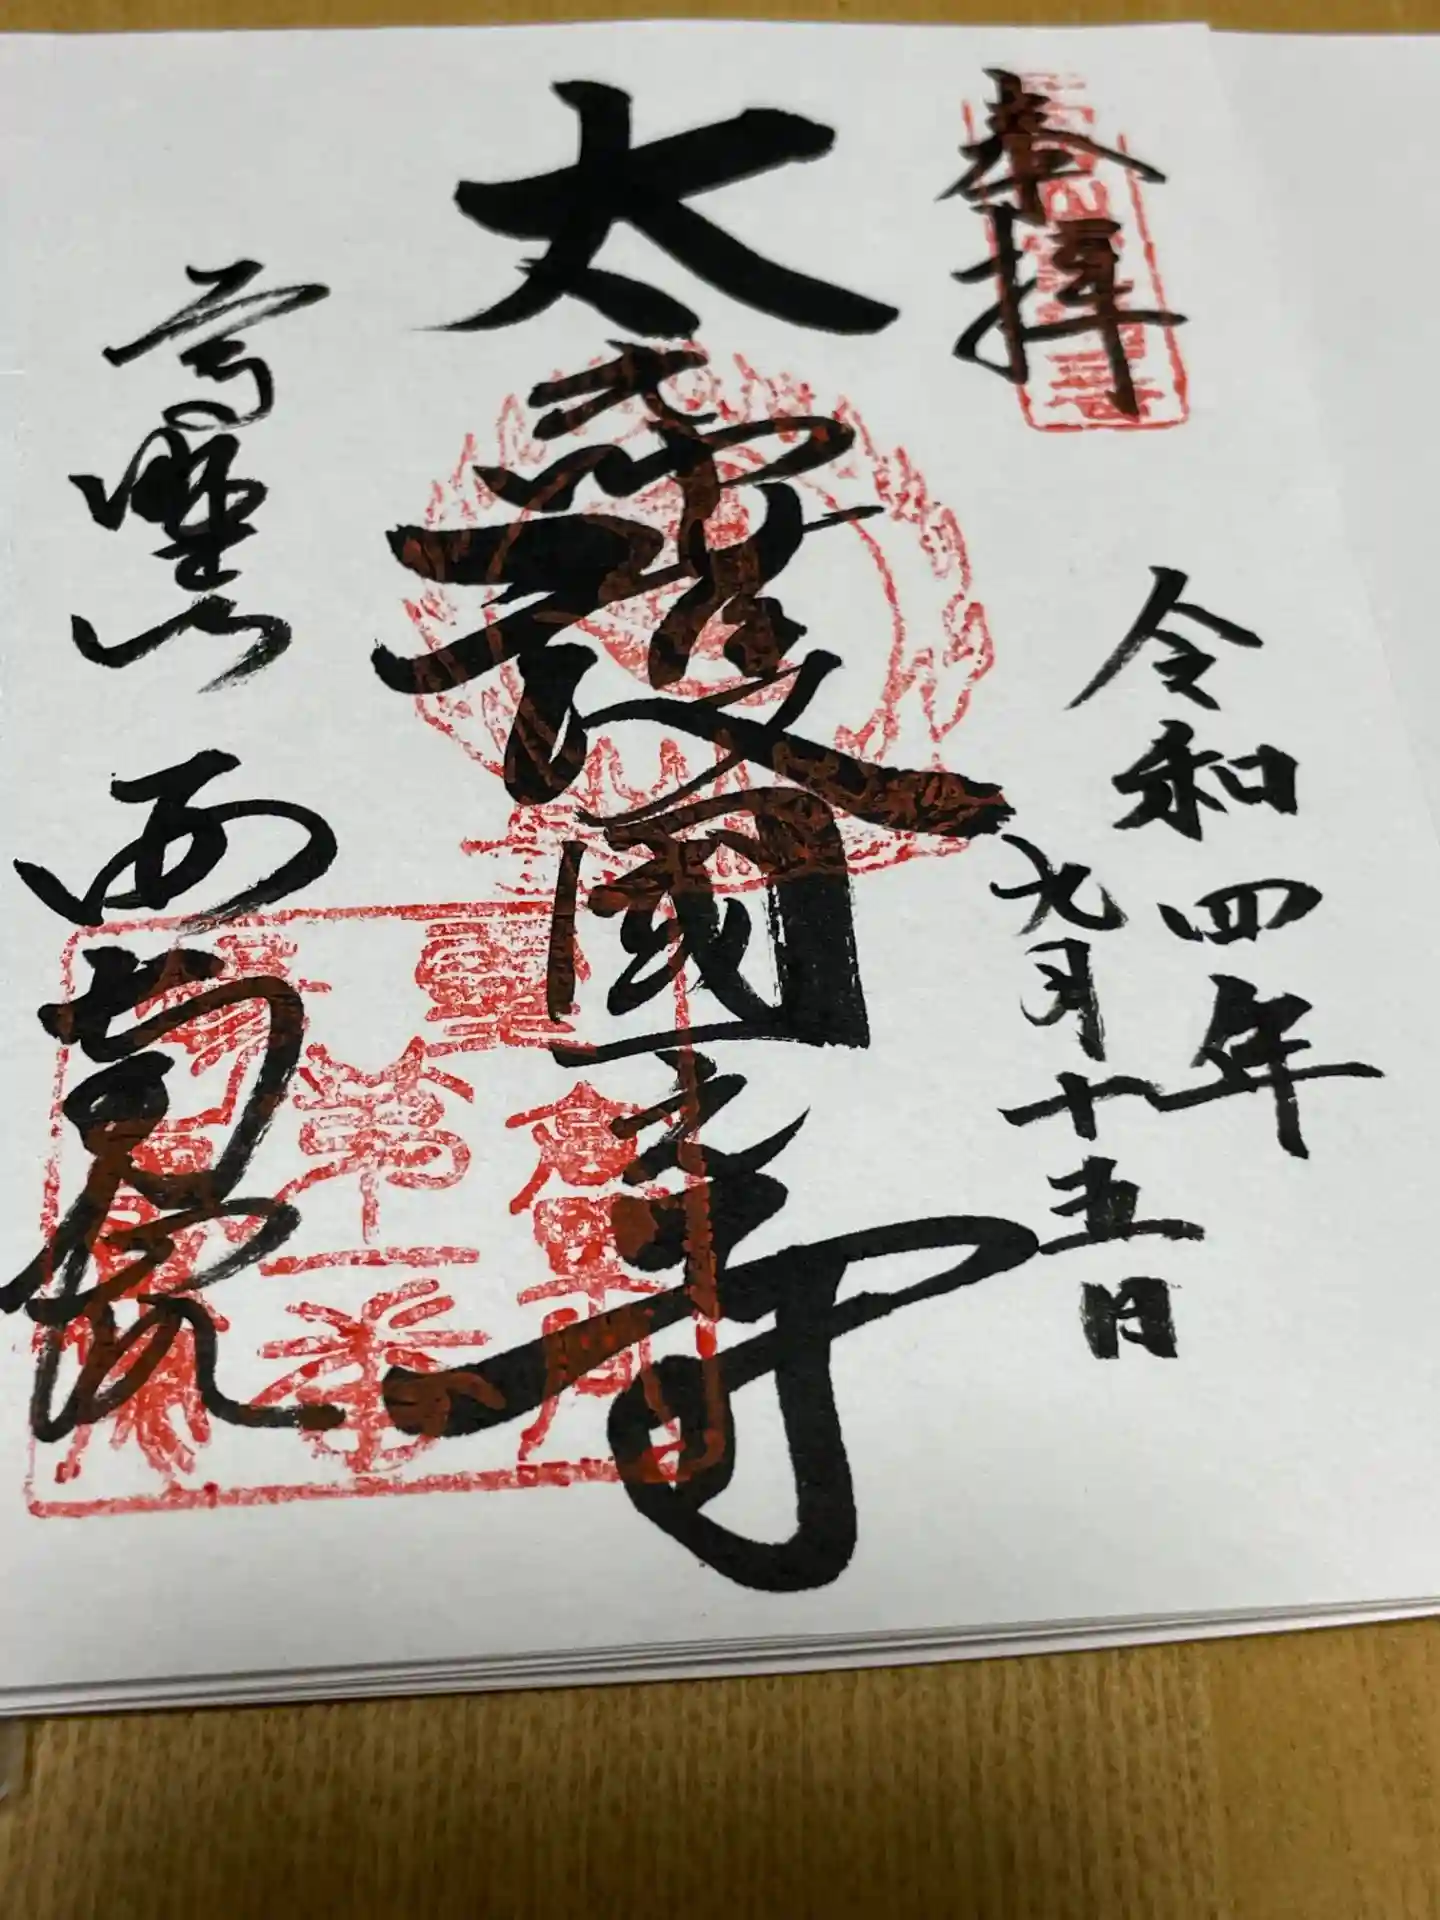 奉拝
令和四年
九月十五日
太元帥護國寺
高野山 西南院